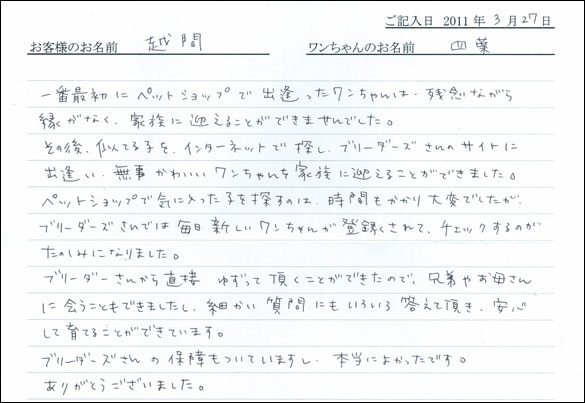 ご記入日 2011年3月27日
お客様のお名前 越間 ワンちゃんのお名前 四葉
一番最初にペットショップで出逢ったワンちゃんは、残念ながら
縁がなく、家族に迎えることができませんでした。
その後、似てる子を、インターネットで探し、ブリーダーズさんのサイトに
出逢い、無事かわいいワンちゃんを家族に迎えることができました。
ペットショップで気に入った子を探すのは、時間もかかり大変でしたが、
ブリーダーズさんでは毎日新しいワンちゃんが登録されて、チェックするのが
たのしみになりました。
ブリーダーさんから直接ゆずって頂くことができたので、兄弟やお母さん
に会うこともできましたし、細かい質問にもいろいろ答えて頂き、安心
して育てることができています。
ブリーダーズさんの保障もついていますし、本当によかったです。
ありがとうございました。